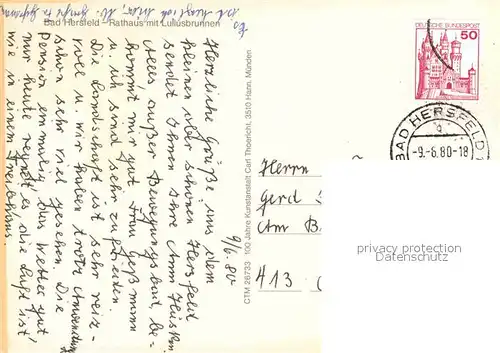 Bad Hersfeld – Rathaus mit Lullusbrunnen
9/6. 80
Herzliche Grüße aus dem
kleinen aber schönen Hersfeld
sendet Ihnen Ihre Anni Hüsken
Alles, außer Bewegungsbad, be-
kommt mir gut. Frau Geßmann
u. ich sind sehr zufrieden.
Die Landschaft ist sehr reiz-
voll u. wir haben trotz Anwendung
schon sehr viel gesehen. Die
Pension einmalig, das Wetter gut,
nur heute regnet es, die Luft ist
wie in einem Treibhaus.
CTM 26733 100 Jahre Kunstanstalt Carl Thoericht, 3510 Hann. Münden
DEUTSCHE BUNDESPOST
50
BAD HERSFELD
-9.-6.80-18
Herrn
Gerd
Am B
413
privacy protection
Datenschutz